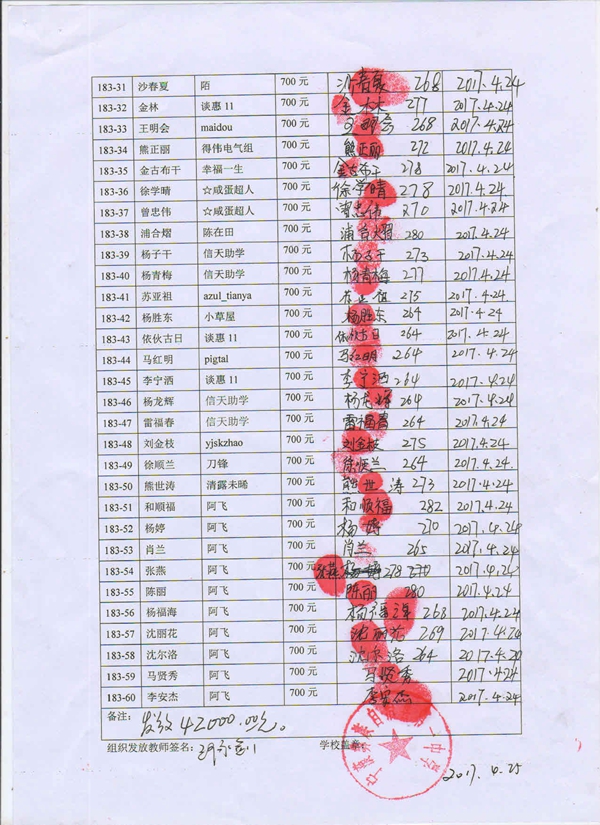 183-31 沙春夏 陌 700 元 沙春夏 268 2017.4.24
183-32 金林 谈惠 11 700 元 金林 277 2017.4.24
183-33 王明会 maidou 700 元 268 2017.4.24
183-34 熊正丽 得伟电气组 700 元 熊正丽 272 2017.4.24
183-35 金古布干 幸福一生 700 元 金古布干 278 2017.4.24
183-36 徐学晴 ☆咸蛋超人 700 元 徐学晴 278 2017.4.24
183-37 曾忠伟 ☆咸蛋超人 700 元 曾忠伟 270 2017.4.24
183-38 浦合熠 陈在田 700 元 浦合熠 280 2017.4.24
183-39 杨子干 信天助学 700 元 杨子干 273 2017.4.24
183-40 杨青梅 信天助学 700 元 杨青梅 277 2017.4.24
183-41 苏亚祖 azul_tianya 700 元 275 2017.4.24
183-42 杨胜东 小草屋 700 元 杨胜东 264 2017.4.24
183-43 依伙古日 谈惠 11 700 元 依伙古日 264 2017.4.24
183-44 马红明 pigtal 700 元 马红明 264 2017.4.24
183-45 李宁洒 谈惠 11 700 元 李宁洒 264 2017.4.24
183-46 杨龙辉 信天助学 700 元 杨龙辉 264 2017.4.24
183-47 雷福春 信天助学 700 元 雷福春 264 2017.4.24
183-48 刘金枝 yjskzhao 700 元 刘金枝 275 2017.4.24
183-49 徐顺兰 刀锋 700 元 徐顺兰 264 2017.4.24
183-50 熊世涛 清露未晞 700 元 熊世涛 273 2017.4.24
183-51 和顺福 阿飞 700 元 和顺福 282 2017.4.24
183-52 杨婷 阿飞 700 元 杨婷 270 2017.4.24
183-53 肖兰 阿飞 700 元 肖兰 265 2017.4.24
183-54 张燕 阿飞 700 元 张燕 杨婷 278 270 2017.4.24
183-55 陈丽 阿飞 700 元 陈丽 280 2017.4.24
183-56 杨福海 阿飞 700 元 杨福海 268 2017.4.24
183-57 沈丽花 阿飞 700 元 沈丽花 269 2017.4.24
183-58 沈尔洛 阿飞 700 元 沈尔洛 264 2017.4.20
183-59 马贤秀 阿飞 700 元 马贤秀 2017.4.24
183-60 李安杰 阿飞 700 元 李安杰 2017.4.24
备注: 发放42000.00元。
组织发放教师签名: 学校盖章:
2017.4.25